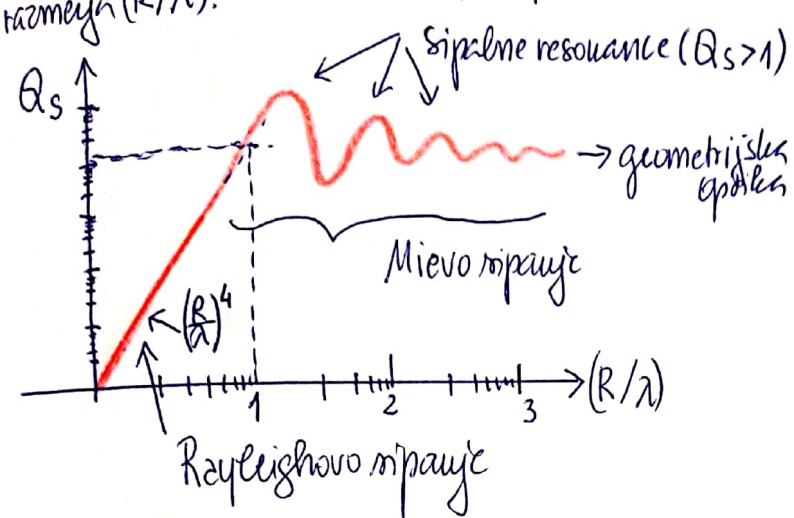 razmerja (R/λ).
Sipalne resonance (Qs>1)
Qs
→ geometrijska
optika
Mievo sipanje
(R/λ)⁴
1
2
3
(R/λ)
Rayleighovo sipanje